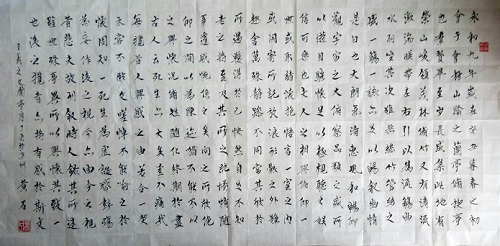 永和九年歲在癸丑暮春之初
會于會稽山陰之蘭亭脩禊事
也羣賢畢至少長咸集此地有
崇山峻領茂林脩竹又有清流
激湍映帶左右引以為流觴曲
水列坐其次雖無絲竹管弦之
盛一觴一詠亦足以暢敘幽情
是日也天朗氣清惠風和暢仰
觀宇宙之大俯察品類之盛所
以遊目騁懷足以極視聽之娛
信可樂也夫人之相與俯仰一
世或取諸懷抱悟言一室之內
或因寄所託放浪形骸之外雖
趣舍萬殊靜躁不同當其欣於
所遇暫得於己快然自足不知
老之將至及其所之既惓情隨
事遷感慨係之矣向之所欣俛
仰之間以為陳迹猶不能不以
之興懷況脩短隨化終期於盡
古人云死生亦大矣豈不痛哉
每攬昔人興感之由若合一契
未嘗不臨文嗟悼不能喻之於
懷固知一死生為虛誕齊彭殤
為妄作後之視今亦由今之視
昔悲夫故列敘時人錄其所述
雖世殊事異所以興懷其致一
也後之攬者亦將有感於斯文